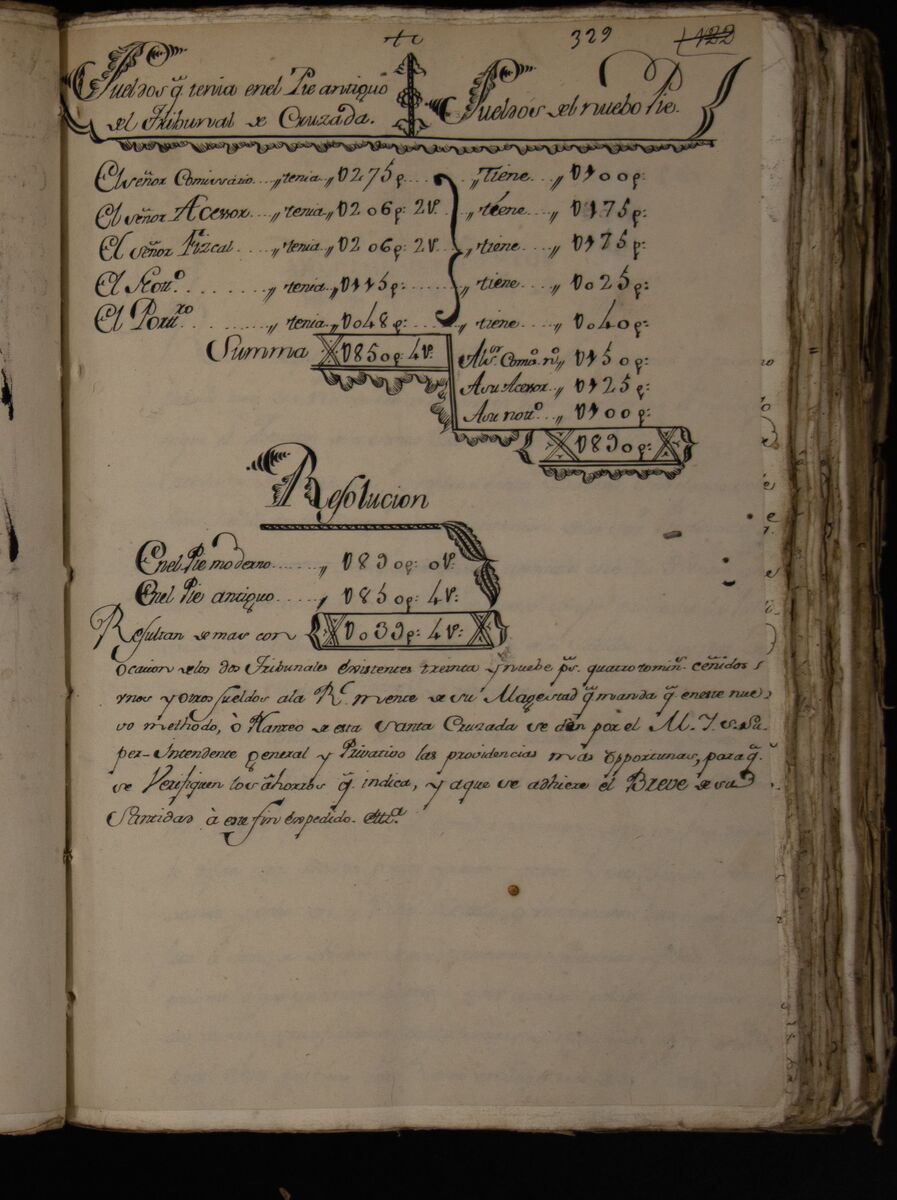 tt
329
122
Sueldos q̃ tenia en el Pie antiguo
del Tribunal de Cruzada.
Sueldos del nuebo Pie.
El señor Comissario....,, tenia,, U275p.....,, Tiene...,, U100p:
El señor Acessor...,, tenia,, U206p: 2r...,, tiene...,, U175p:
El señor Fizcal....,, tenia,, U206p: 2r...,, tiene...,, U175p:
El Nottº.........,, tenia,, U115p:.....,, tiene...,, U025p:
El Portrº.........,, tenia,, U048p:.....,, tiene...,, U040p:
Summa U850p: 4r:
Al sr Comº. nº,, U150p:
A su Acesor..,, U125p:
A su notº...,, U100p:
U890p:
Resolucion
En el Pie moderno......,, U890p: 0r:
En el Pie antiguo.....,, U850p: 4r:
Resultan de mas con U039p: 4r:
ocacion de los dos Tribunales existentes treinta y nuebe ps. quatro tomin.s ceñidos
vnos y otros sueldos a la Rl. mente de su Magestad q̃ manda q̃ en este nue
vo methodo, ò Planteo de esta Santa Cruzada se dèn por el M. Y. S. Su
per-Intendente general y Privativo las providencias mas opportunas, para q̃.
se Verifiquen los ahorros q̃. indica, y a que se adhiere el Breve de su
Santidad à este fin expedido. ettcª.